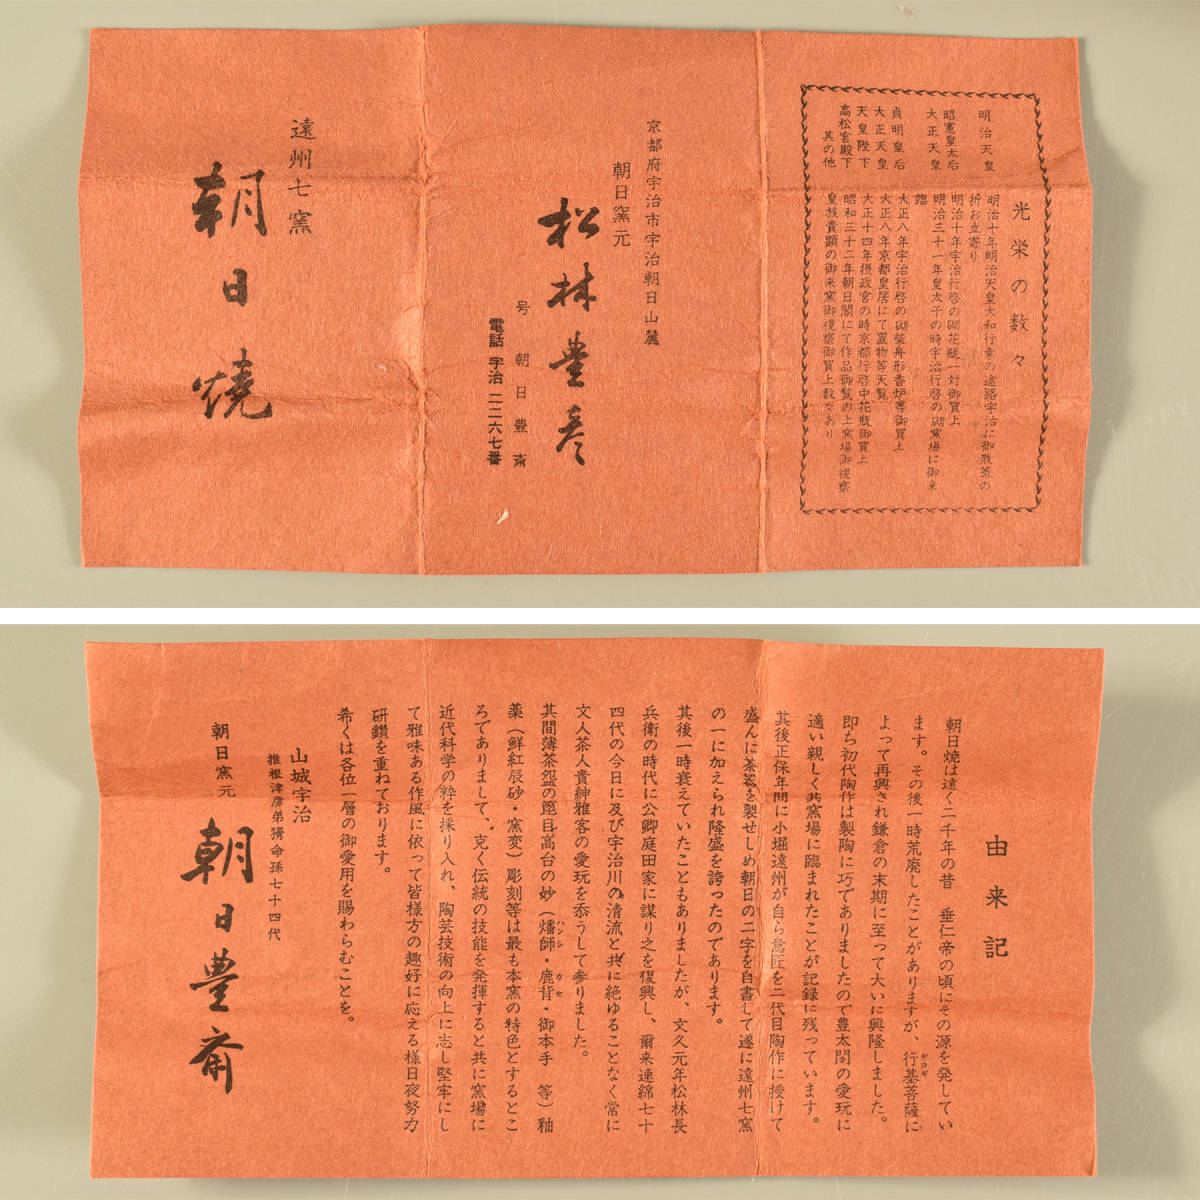 光栄の数々
明治天皇 明治十年明治天皇大和行幸の途路宇治に御散策の
折お立寄り
昭憲皇太后 明治十年宇治行啓の砌花瓶一対御買上
大正天皇 明治三十一年皇太子の時宇治行啓の砌窯場に御来
臨
貞明皇后 大正八年宇治行啓の砌柴舟形香炉等御買上
大正天皇 大正八年京都皇居にて置物等天覧
天皇陛下 大正十四年摂政宮の時京都行啓中花瓶御買上
高松宮殿下 昭和三十二年朝日閣にて作品御覧の上窯場御視察
其の他 皇族貴顕の御来窯御視察御買上数々あり
京都府宇治市宇治朝日山麓
朝日窯元
松林豊彦
号 朝日豊斎
電話 宇治 二二六七番
遠州七窯
朝日焼
由来記
朝日焼は遠く二千年の昔 垂仁帝の頃にその源を発してい
ます。その後一時荒廃したことがありますが、行基菩薩に
ギヨギ
よって再興され鎌倉の末期に至って大いに興隆しました。
即ち初代陶作は製陶に巧でありましたので豊太閤の愛玩に
適い親しく其窯場に臨まれたことが記録に残っています。
其後正保年間に小堀遠州が自ら意匠を二代目陶作に授けて
盛んに茶器を製せしめ朝日の二字を自書して遂に遠州七窯
の一に加えられ隆盛を誇ったのであります。
其後一時衰えていたこともありましたが、文久元年松林長
兵衛の時代に公卿庭田家に謀り之を復興し、爾来連綿七十
四代の今日に及び宇治川の清流と共に絶ゆることなく常に
文人茶人貴紳雅客の愛玩を忝うして参りました。
其間薄茶盌の箆目高台の妙(燔師・鹿背・御本手 等)釉
ハンシ カセ
薬(鮮紅辰砂・窯変)彫刻等は最も本窯の特色とするとこ
ろでありまして、克く伝統の技能を発揮すると共に窯場に
近代科学の粋を採り入れ、陶芸技術の向上に志し堅牢にし
て雅味ある作風に依って皆様方の趣好に応える様日夜努力
研鑽を重ねております。
希くは各位一層の御愛用を賜わらむことを。
山城宇治
推根津彦弟猾命孫七十四代
朝日窯元 朝日豊斎